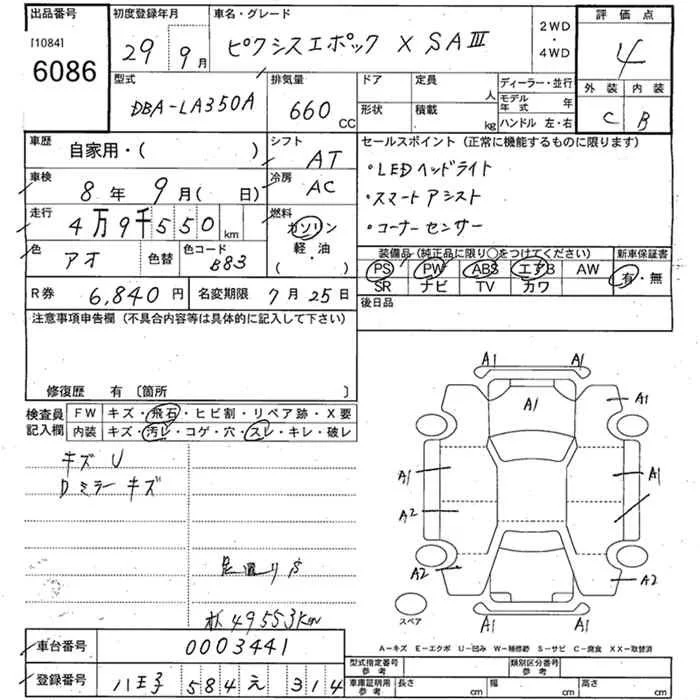 出品番号
[1084]
6086
初度登録年月
29 9月
車名・グレード
ピクシスエポック X SAⅢ
2WD
・
4WD
評価点
4
外装 内装
C B
型式
DBA-LA350A
排気量
660 CC
ドア 定員 人
形状 積載 kg
ディーラー・並行
モデル年式 年
ハンドル 左・右
車歴
自家用・( )
シフト
AT
車検
8年 9月( 日)
冷房
AC
走行
4万9千550km
燃料
ガソリン
軽・油
( )
色
アオ
色替
色コード
B83
セールスポイント(正常に機能するものに限ります)
・LEDヘッドライト
・スマートアシスト
・コーナーセンサー
装備品(純正品に限り○をつけてください)
新車保証書
PS PW ABS エアB AW
有・無
SR ナビ TV カワ
後日品
R券 6,840円 名変期限 7月25日
注意事項申告欄(不具合内容等は具体的に記入して下さい)
修復歴 有 〔箇所 〕
検査員記入欄
FW キズ・飛石・ヒビ割・リペア跡・X要
内装 キズ・汚レ・コゲ・穴・スレ・キレ・破レ
キズ U
Dミラー キズ
49553km
A1 A1
A1
A1
A1 A1
A2
A2 A2
A1 A1
スペア
A-キズ E-エクボ U-凹み W-補修跡 S-サビ C-腐食 XX-取替済
車台番号 0003441
登録番号 八王子 584 え 314
型式指定番号 参考
類別区分番号 参考
車庫証明用 参考 長さ cm 幅 cm 高さ cm